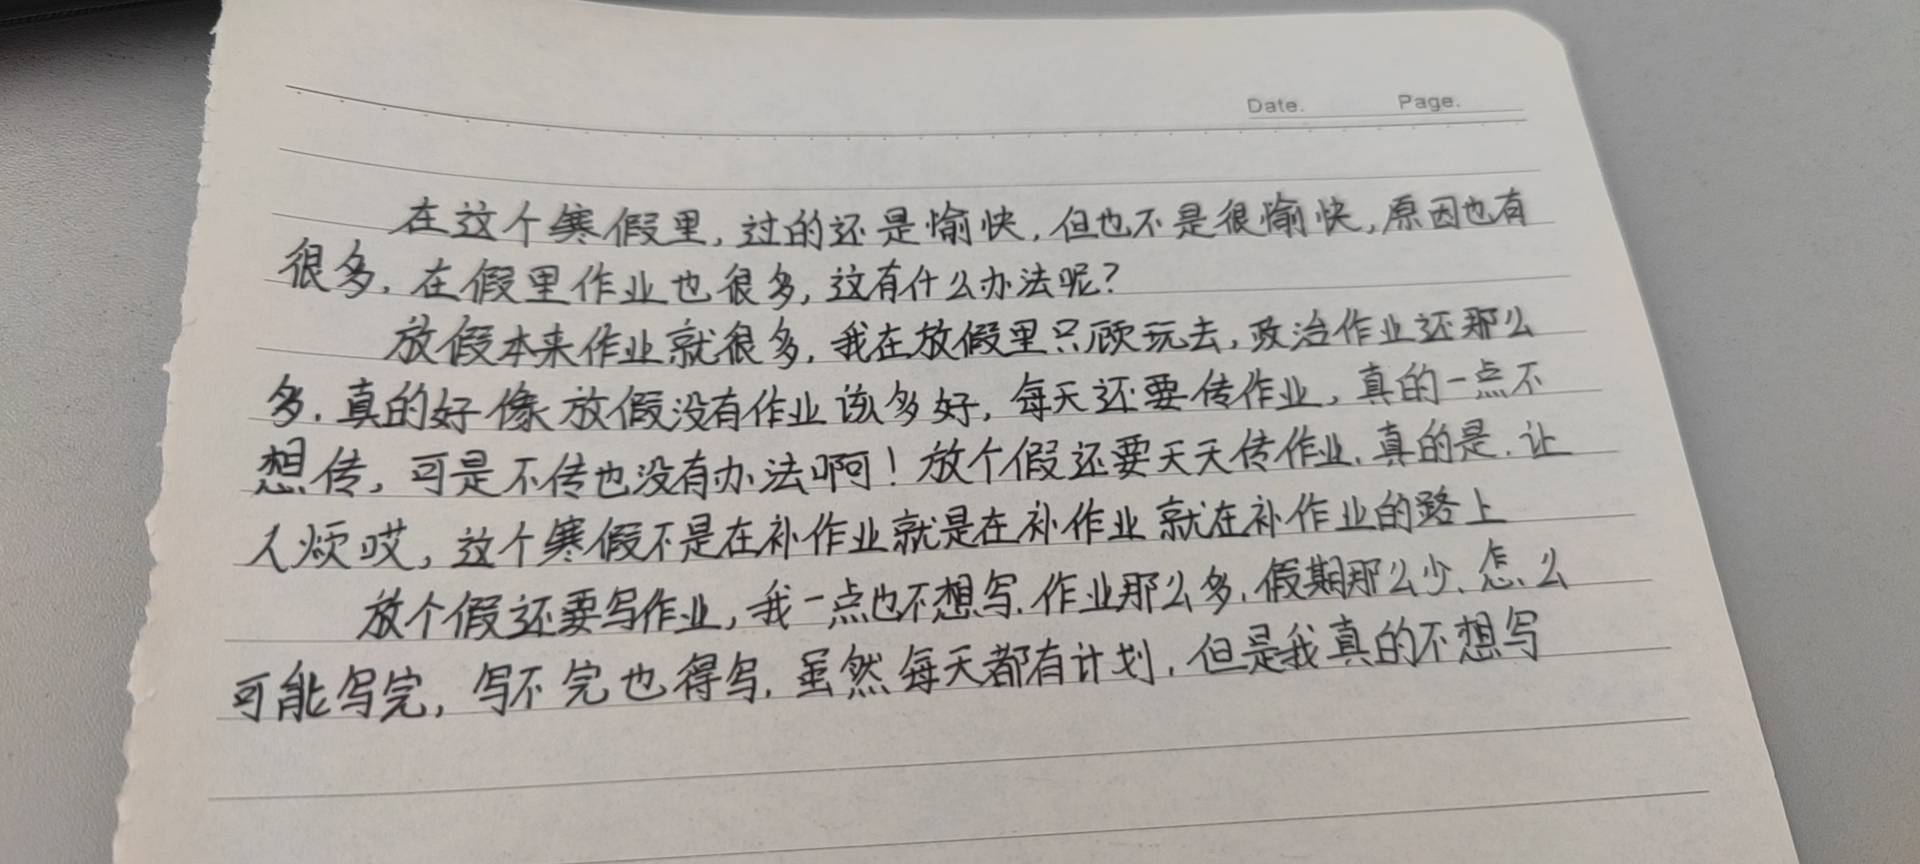 Date. Page.
在这个寒假里,过的还是愉快,但也不是很愉快,原因也有
很多.在假里作业也很多,这有什么办法呢?
放假本来作业就很多,我在放假里只顾玩去,政治作业还那么
多.真的好像放假没有作业该多好,每天还要传作业,真的一点不
想传,可是不传也没有办法啊!放个假还要天天传作业.真的是.让
人烦哎,这个寒假不是在补作业就是在补作业就在补作业的路上
放个假还要写作业,我一点也不想写.作业那么多.假期那么少.怎么
可能写完,写不完也得写.虽然每天都有计划.但是我真的不想写